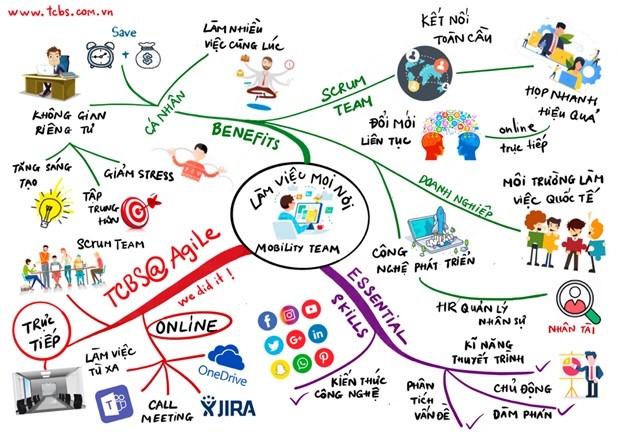 www.tcbs.com.vn
Save
LÀM NHIỀU
VIỆC CÙNG LÚC
KHÔNG GIAN
RIÊNG TƯ
CÁ NHÂN
BENEFITS
TĂNG SÁNG
TẠO
GIẢM STRESS
TẬP
TRUNG
HƠN
KẾT NỐI
TOÀN CẦU
SCRUM
TEAM
HỌP NHANH
HIỆU QUẢ
ĐỔI MỚI
LIÊN TỤC
online
trực tiếp
DOANH NGHIỆP
MÔI TRƯỜNG LÀM
VIỆC QUỐC TẾ
CÔNG
NGHỆ PHÁT TRIỂN
HR QUẢN LÝ
NHÂN SỰ
NHÂN TÀI
LÀM VIỆC MỌI NƠI
MOBILITY TEAM
SCRUM TEAM
TCBS@Agile
we did it!
TRỰC
TIẾP
ONLINE
LÀM VIỆC
TỪ XA
OneDrive
CALL
MEETING
JIRA
ESSENTIAL
SKILLS
KIẾN THỨC
CÔNG NGHỆ
KĨ NĂNG
THUYẾT TRÌNH
PHÂN
TÍCH
VẤN ĐỀ
CHỦ ĐỘNG
ĐÀM PHÁN